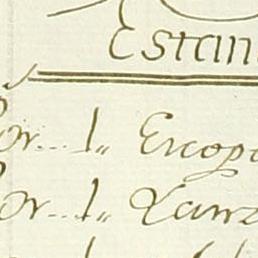 Estan
Por... 1,, Escope
Por... 1,, Lanz